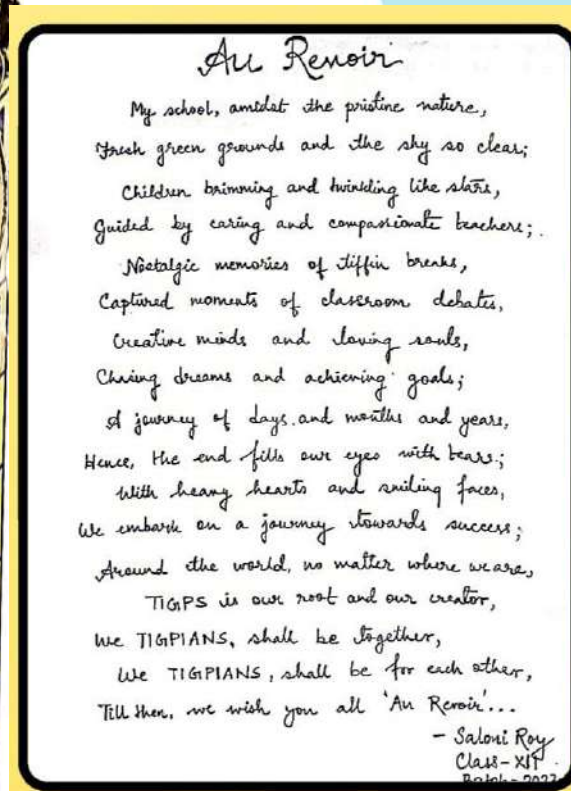 Au Revoir
My school, amidst the pristine nature,
Fresh green grounds and the sky so clear;
Children brimming and twinkling like stars,
Guided by caring and compassionate teachers;
Nostalgic memories of tiffin breaks,
Captured moments of classroom debates,
Creative minds and loving souls,
Chasing dreams and achieving goals;
A journey of days and months and years,
Hence, the end fills our eyes with tears;
With heavy hearts and smiling faces,
We embark on a journey towards success;
Around the world, no matter where we are,
TIGPS is our root and our creator,
We TIGPIANS, shall be together,
We TIGPIANS, shall be for each other,
Till then, we wish you all 'Au Revoir'...
- Saloni Roy
Class - XII
Batch - 2023